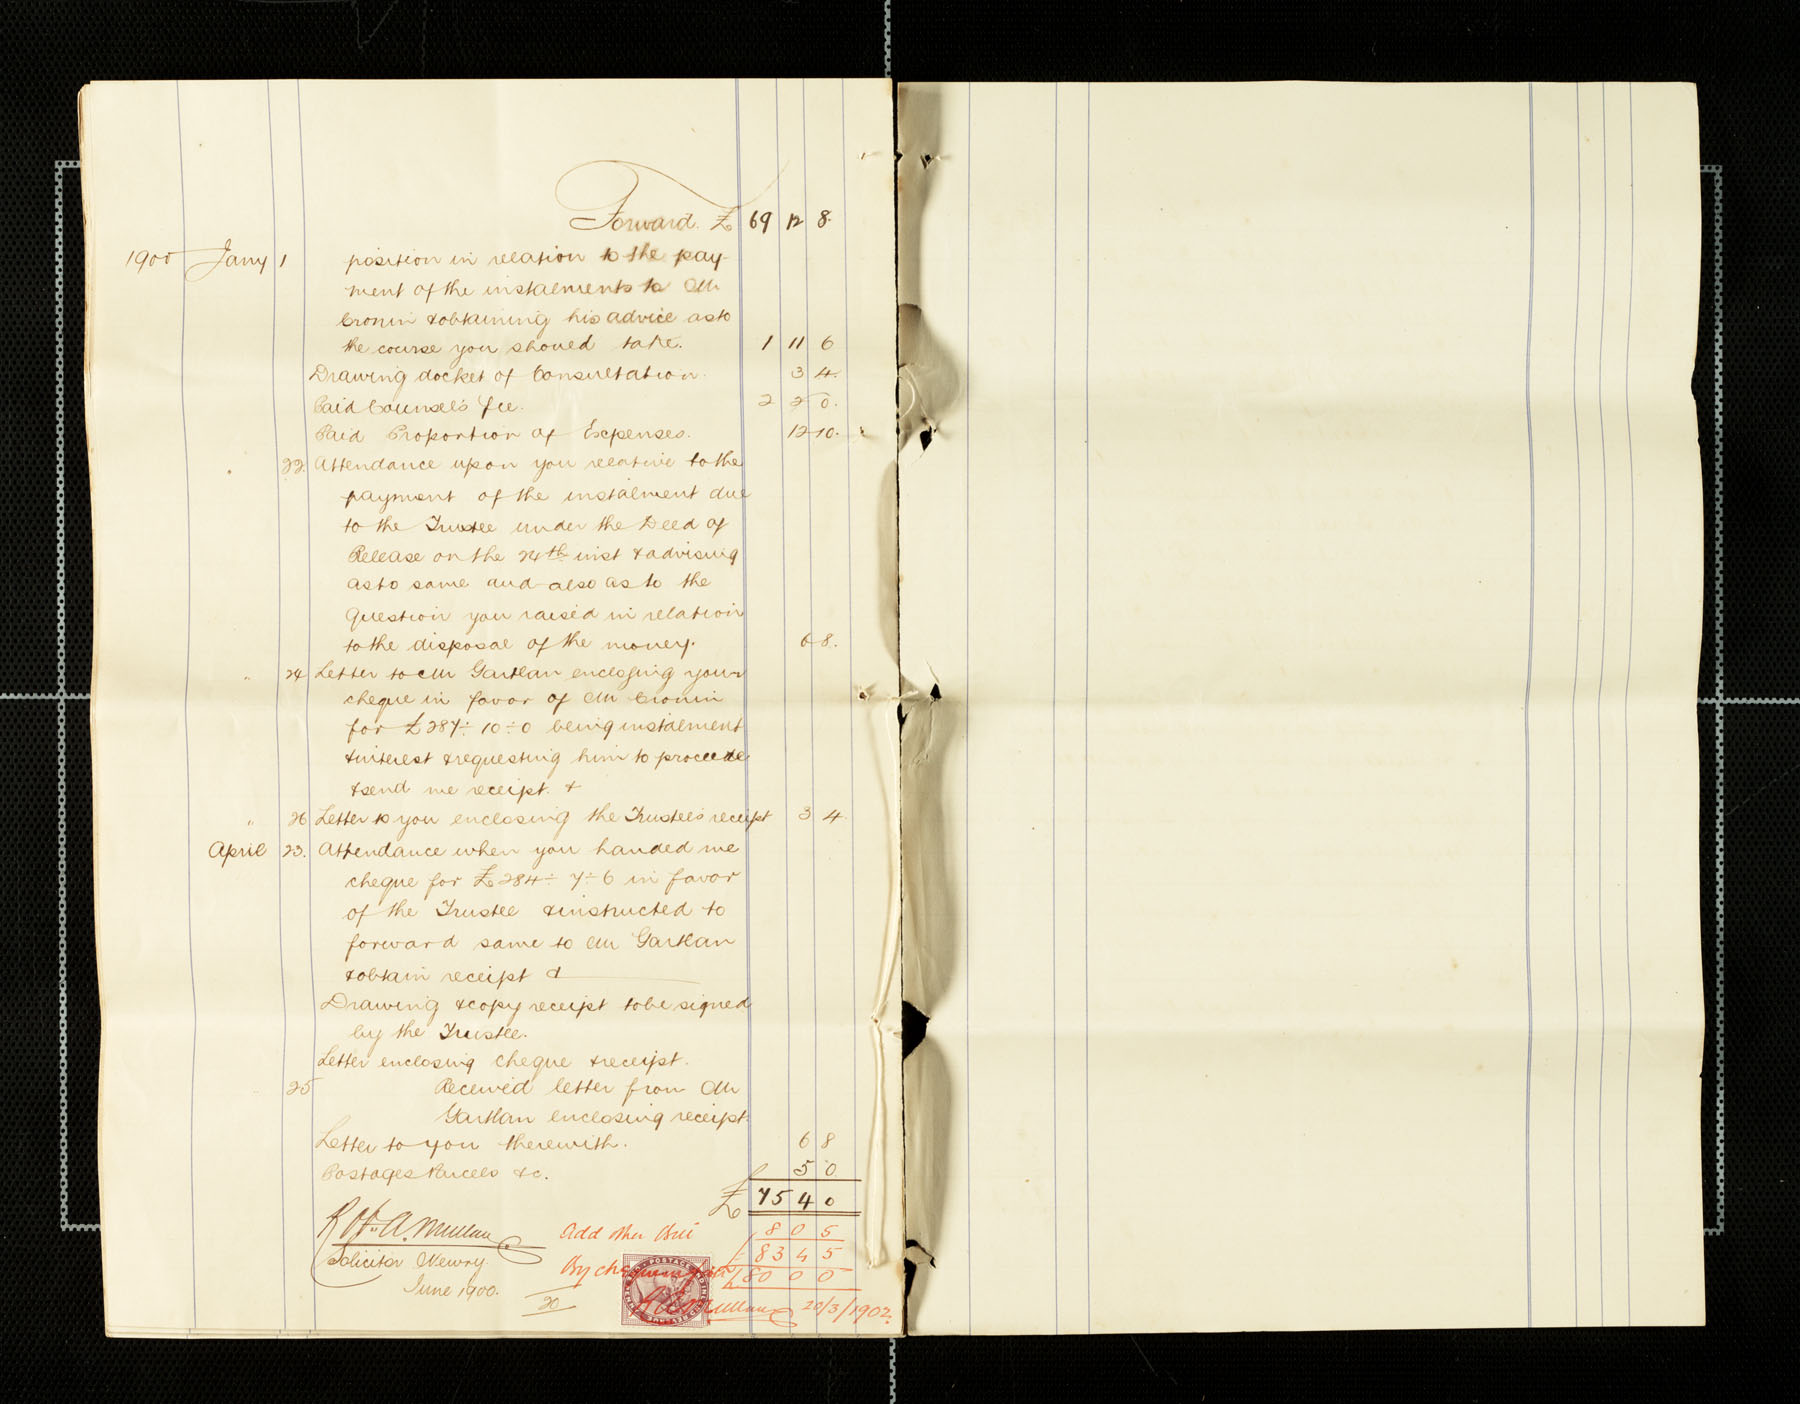 Forward. £ 69 12 8.
1900 Jany 1 position in relation to the pay-
ment of the instalments to Mr
Cronin & obtaining his advice as to
the course you should take. 1 11 6
Drawing docket of Consultation. 3 4.
Paid Counsel's fee. 2 2 0.
Paid Proportion of Expenses. 12 10.
" 22. Attendance upon you relative to the
payment of the instalment due
to the Trustee under the Deed of
Release on the 24th inst & advising
as to same and also as to the
question you raised in relation
to the disposal of the money. 6 8.
" 24 Letter to Mr Gartlan enclosing your
cheque in favor of Mr Cronin
for £287÷10÷0 being instalment
& interest & requesting him to
& send me receipt. &
" 26 Letter to you enclosing the Trustees receipt 3 4.
April 23. Attendance when you handed me
cheque for £284÷7÷6 in favor
of the Trustee & instructed to
forward same to Mr Gartlan
& obtain receipt &
Drawing & copy receipt to be signed
by the Trustee.
Letter enclosing cheque & receipt.
25 Received letter from Mr
Gartlan enclosing receipt.
Letter to you therewith. 6 8
Postages Parcels &c. 5 0
£ 75 4 0
Robt. A. Mullan
Solicitor Newry.
June 1900.
Add other Bill 8 0 5
83 4 5
By cheque 80 0 0
20
R A Mullan 20/3/1902.